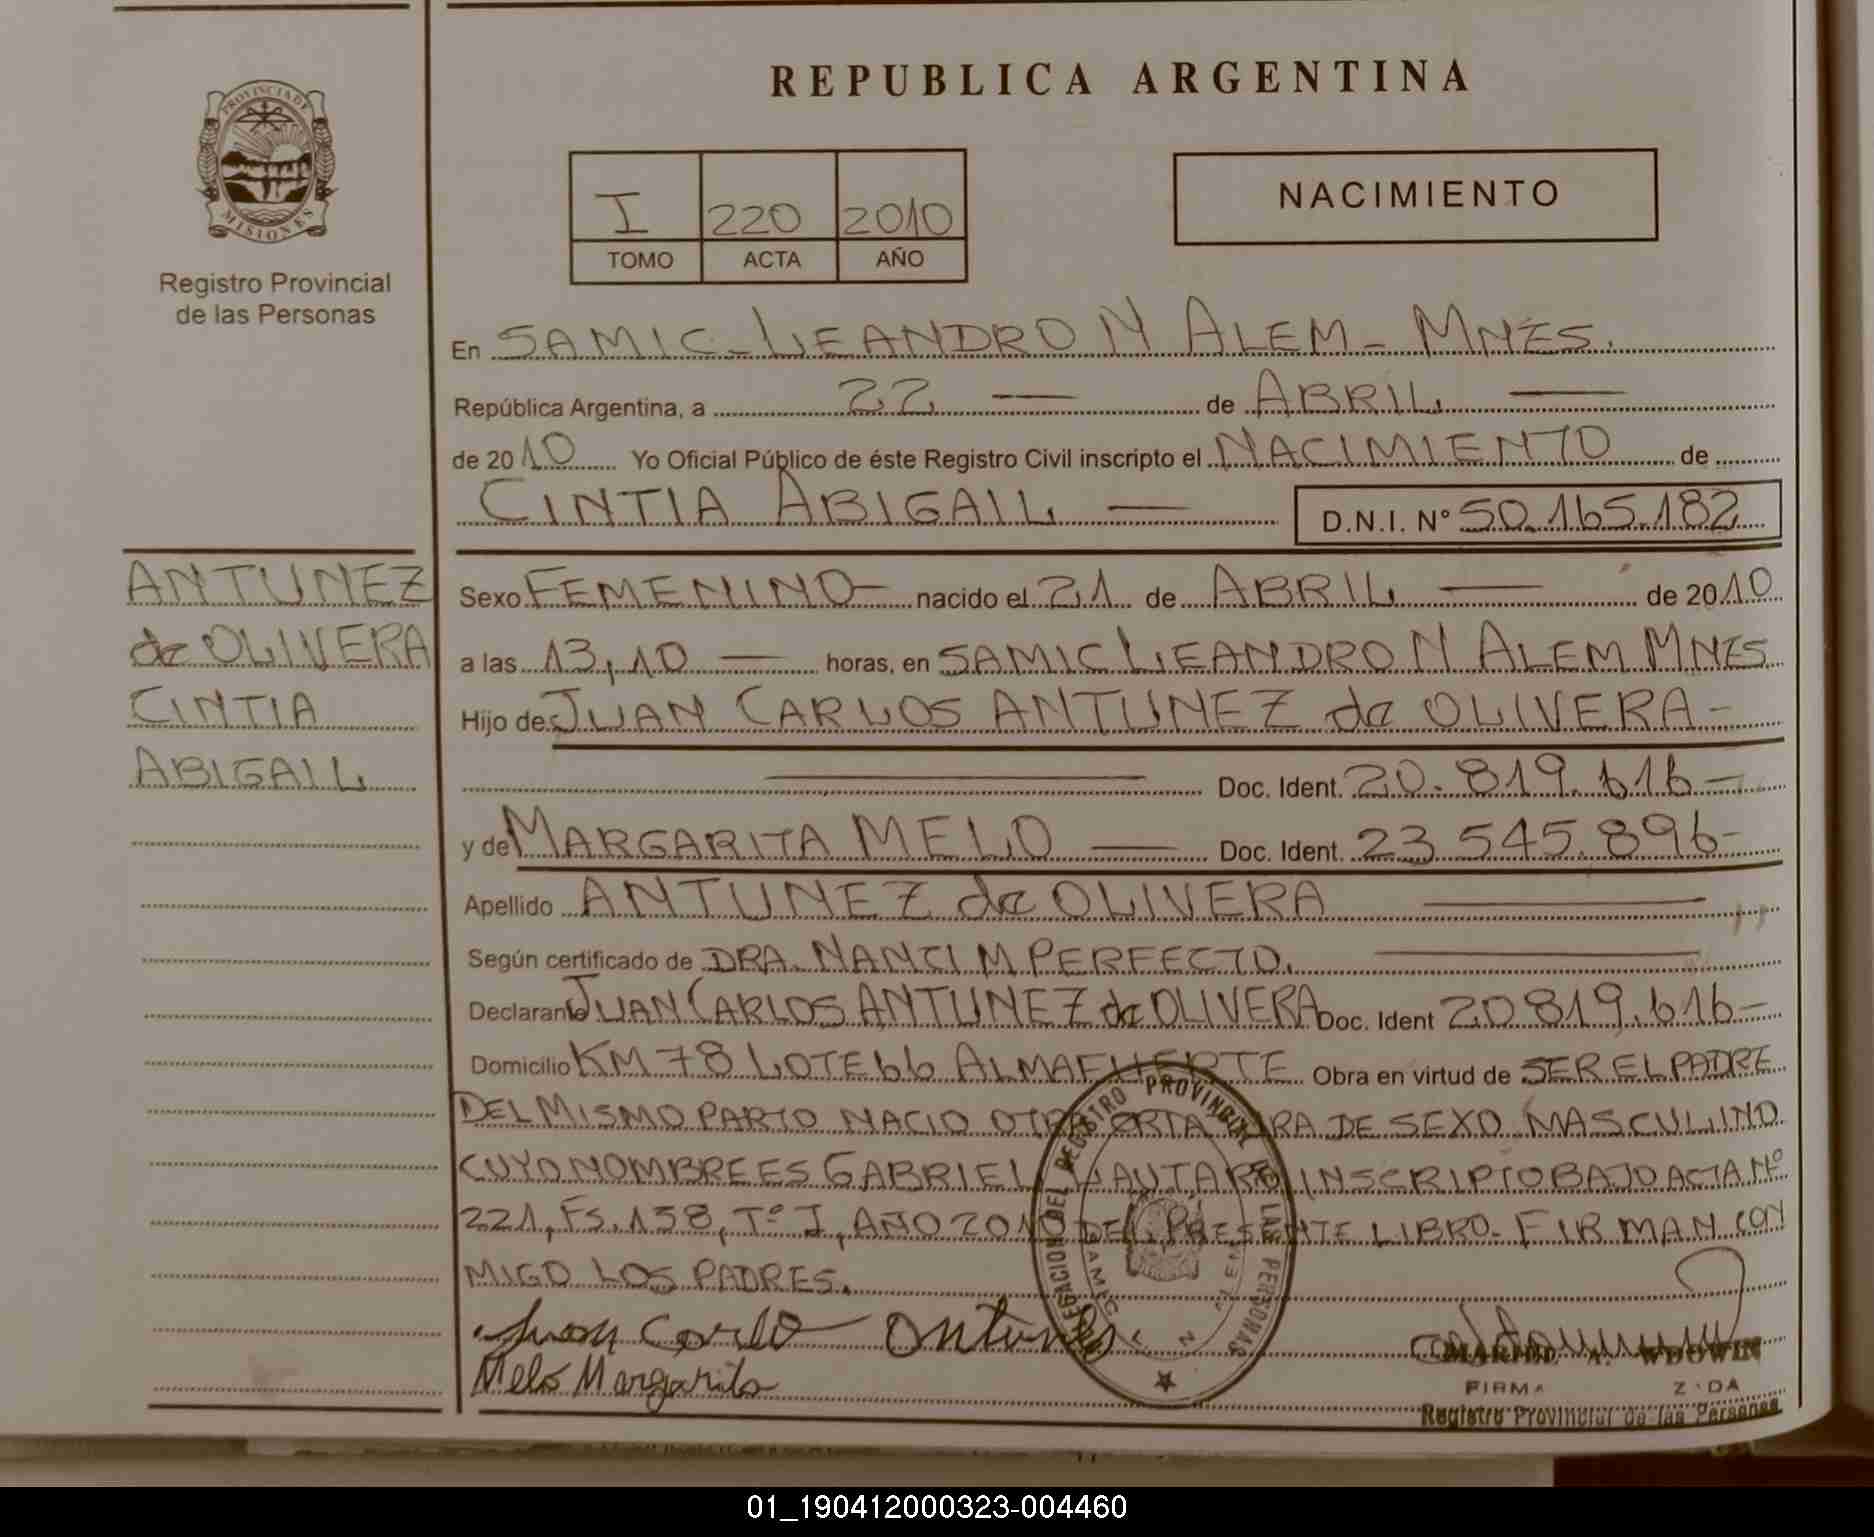 REPUBLICA ARGENTINA
PROVINCIA DE MISIONES
Registro Provincial
de las Personas
I 220 2010
TOMO ACTA AÑO
NACIMIENTO
En SAMIC - LEANDRO N ALEM - MNES.
República Argentina, a 22 — de ABRIL —
de 2010 Yo Oficial Público de éste Registro Civil inscripto el NACIMIENTO de
CINTIA ABIGAIL — D.N.I. N° 50.165.182
ANTUNEZ
de OLIVERA
CINTIA
ABIGAIL
Sexo FEMENINO — nacido el 21 de ABRIL — de 2010
a las 13,10 — horas, en SAMIC LEANDRO N ALEM MNES
Hijo de JUAN CARLOS ANTUNEZ de OLIVERA -
Doc. Ident. 20.819.616 -
y de MARGARITA MELO — Doc. Ident. 23 545.896 -
Apellido ANTUNEZ de OLIVERA
Según certificado de DRA. NANCI M PERFECTO.
Declarante JUAN CARLOS ANTUNEZ de OLIVERA Doc. Ident 20 819.616 -
Domicilio KM 78 LOTE 66 ALMAFUERTE Obra en virtud de SER EL PADRE
DEL MISMO PARTO NACIO OTRA CRIATURA DE SEXO MASCULINO
CUYO NOMBRE ES GABRIEL LAUTARO INSCRIPTO BAJO ACTA Nº
221, Fs. 158, Tº I, AÑO 2010 DEL PRESENTE LIBRO - FIRMAN CON
MIGO LOS PADRES.
Juan Carlo Antunes
Melo Margarita
WDOWIN
FIRMA
Registro Provincial de las Personas
DELEGACION DEL REGISTRO PROVINCIAL DE LAS PERSONAS
SAMIC L N ALEM
01_190412000323-004460